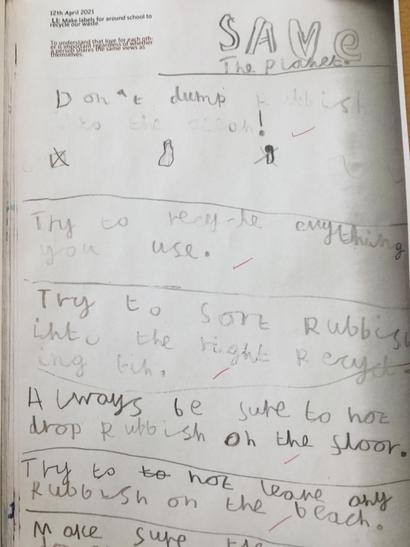 12th April 2021
LI: Make labels for around school to
recycle our waste.
To understand that love for each oth-
er is important regardless of whether
a person shares the same views as
themselves.
SAVe
The planet.
Don't dump Rubbish
into the ocean!
Try to recycle anything
you use.
Try to Sort Rubbish
into the right Recycl-
ing bin.
Always be sure to not
drop Rubbish on the floor.
Try to to not leave any
Rubbish on the beach.
Make sure the